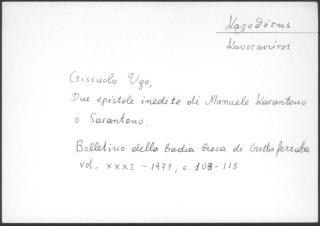 Καζοδίτης
Κωνσταντῖνος
Criscuolo Ugo,
Due epistole inedite di Manuele Karanteno
o Saranteno.
Bollettino della Badia Greca di Grottaferrata
vol. XXXI - 1977, c. 103-115